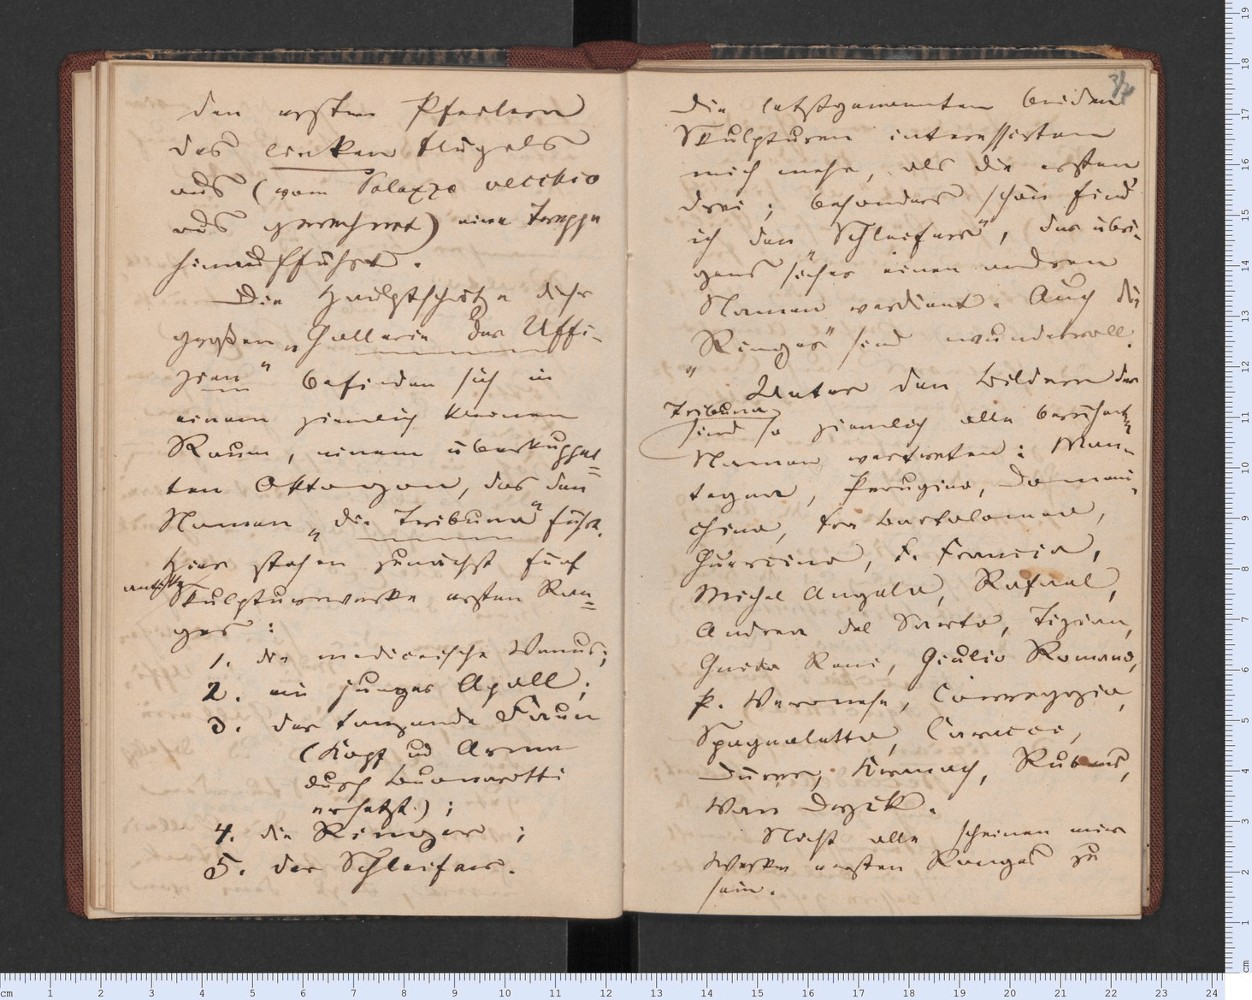 den ersten Pfeilern
des linken Flügels
aus (vom Palazzo vecchio
aus gerechnet) eine Treppe
hinaufführt.
Die Hauptschätze dieser
großen „Gallerie der Uffi-
zien“ befinden sich in
einem ziemlich kleinen
Raum, einem überkuppel=
ten Oktogon, das den
Namen „die Tribuna“ führt.
Hier stehen zunächst fünf
antike
Skulpturwerke ersten Ran=
ges:
1. die mediceische Venus;
2. ein junger Apoll;
3. der tanzende Faun
(Kopf und Arme
durch Buonarotti
ersetzt.);
4. die Ringer;
5. der Schleifer.
37
Die letztgenannten beiden
Skulpturen interessirten
mich mehr, als die ersten
drei; besonders schön find
ich den „Schleifer“, der übri-
gens sicher einen andren
Namen verdient. Auch die
„Ringer“ sind wundervoll.
Unter den Bildern der
Tribuna
sind so ziemlich alle berühmten
Namen vertreten: Man-
tegna, Perugino, Domeni-
chino, Fra Bartolomeo,
Guercino, F. Francia,
Michel Angelo, Rafael,
Andrea del Sarto, Tizian,
Guido Reni, Giulio Romano,
P. Veronese, Correggio,
Spagnoletto, Caracci,
Dürer, Kranach, Rubens,
Van Dyck.
Nicht alle scheinen mir
Werke ersten Ranges zu
sein.